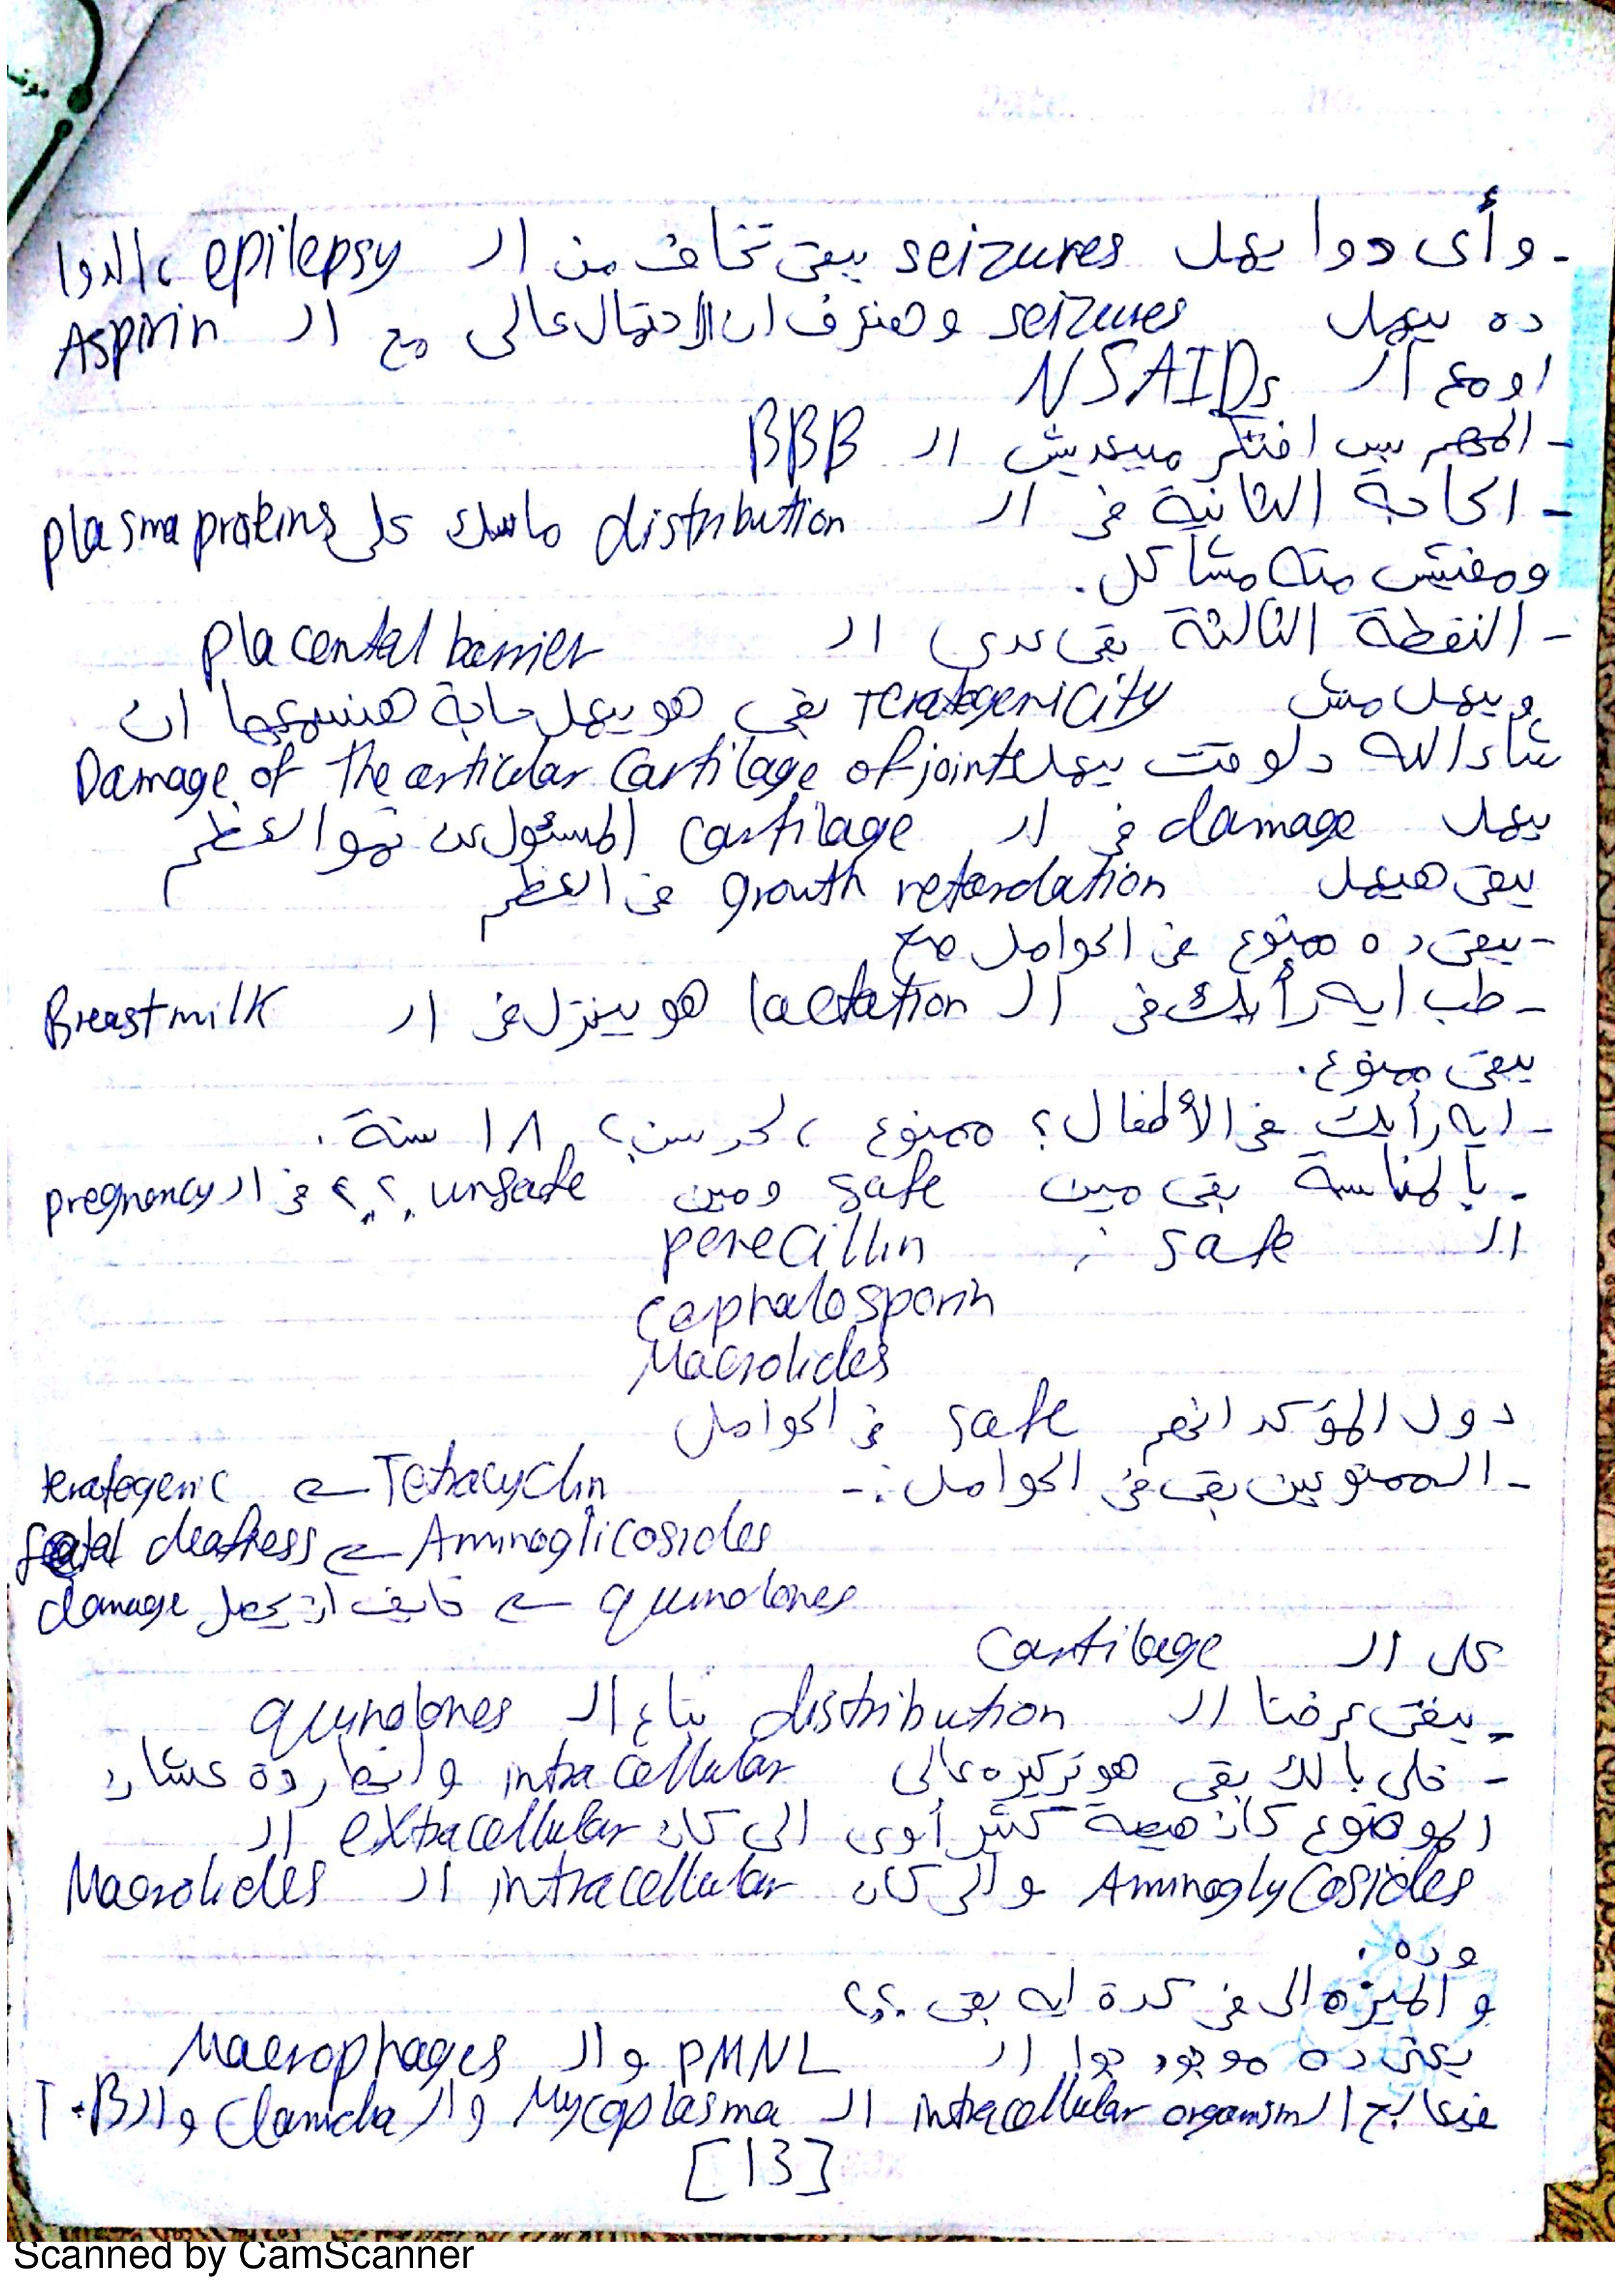 - وأى دوا يعمل seizures يبقى تخاف من ال epilepsy ، الدوا
ده بيعمل seizures وهنعرف ان الاحتمال عالى مع ال Aspirin
او مع ال NSAIDs
- المهم بس افتكر مبيعديش ال BBB
- الحاجة الثانية فى ال distribution ماسك على plasma proteins
ومفيش منه مشاكل.
- النقطة الثالثة بقى عدى ال placental barrier
وبيعمل مش Teratogenicity بقى هو بيعمل حاجة هنسميها ان
شاء الله دلوقت بيعمل Damage of the articular cartilage of joints
بيعمل damage فى ال cartilage المسئول عن نمو العظم
يبقى هيعمل growth retardation فى العظم
- يبقى ده ممنوع فى الحوامل صح
- طب ايه رأيك فى ال lactation هو بينزل فى ال Breast milk
يبقى ممنوع.
- ايه رأيك فى الأطفال؟ ممنوع ، لحد سن؟ ١٨ سنة.
- بالمناسبة بقى مين safe ومين unsafe ؟؟ فى ال pregnancy
ال safe :
penecillin
cephalosporin
Macrolides
دول المؤكد انهم safe فى الحوامل
- الممنوعين بقى فى الحوامل :-
Tetracyclin ← teratogenic
Aminoglicosides ← featal deafness
quinolones ← خايف ان يحصل damage
على ال cartilage
- يبقى عرضنا ال distribution بتاع ال quinolones
- خلى بالك بقى هو تركيزه عالى intracellular وانهاردة عشان
الموضوع كان مهم كتير أوى الى كان extracellular ال
Aminoglycosides والى كان intracellular ال Macrolides
وده.
والميزه الى فى كدة ايه بقى ؟؟
يعنى ده موجود جوا ال PMNL وال Macrophages
فبنعالج ال intracellular organism ال Mycoplasma وال Clamidia وال T.B
[13]
Scanned by CamScanner